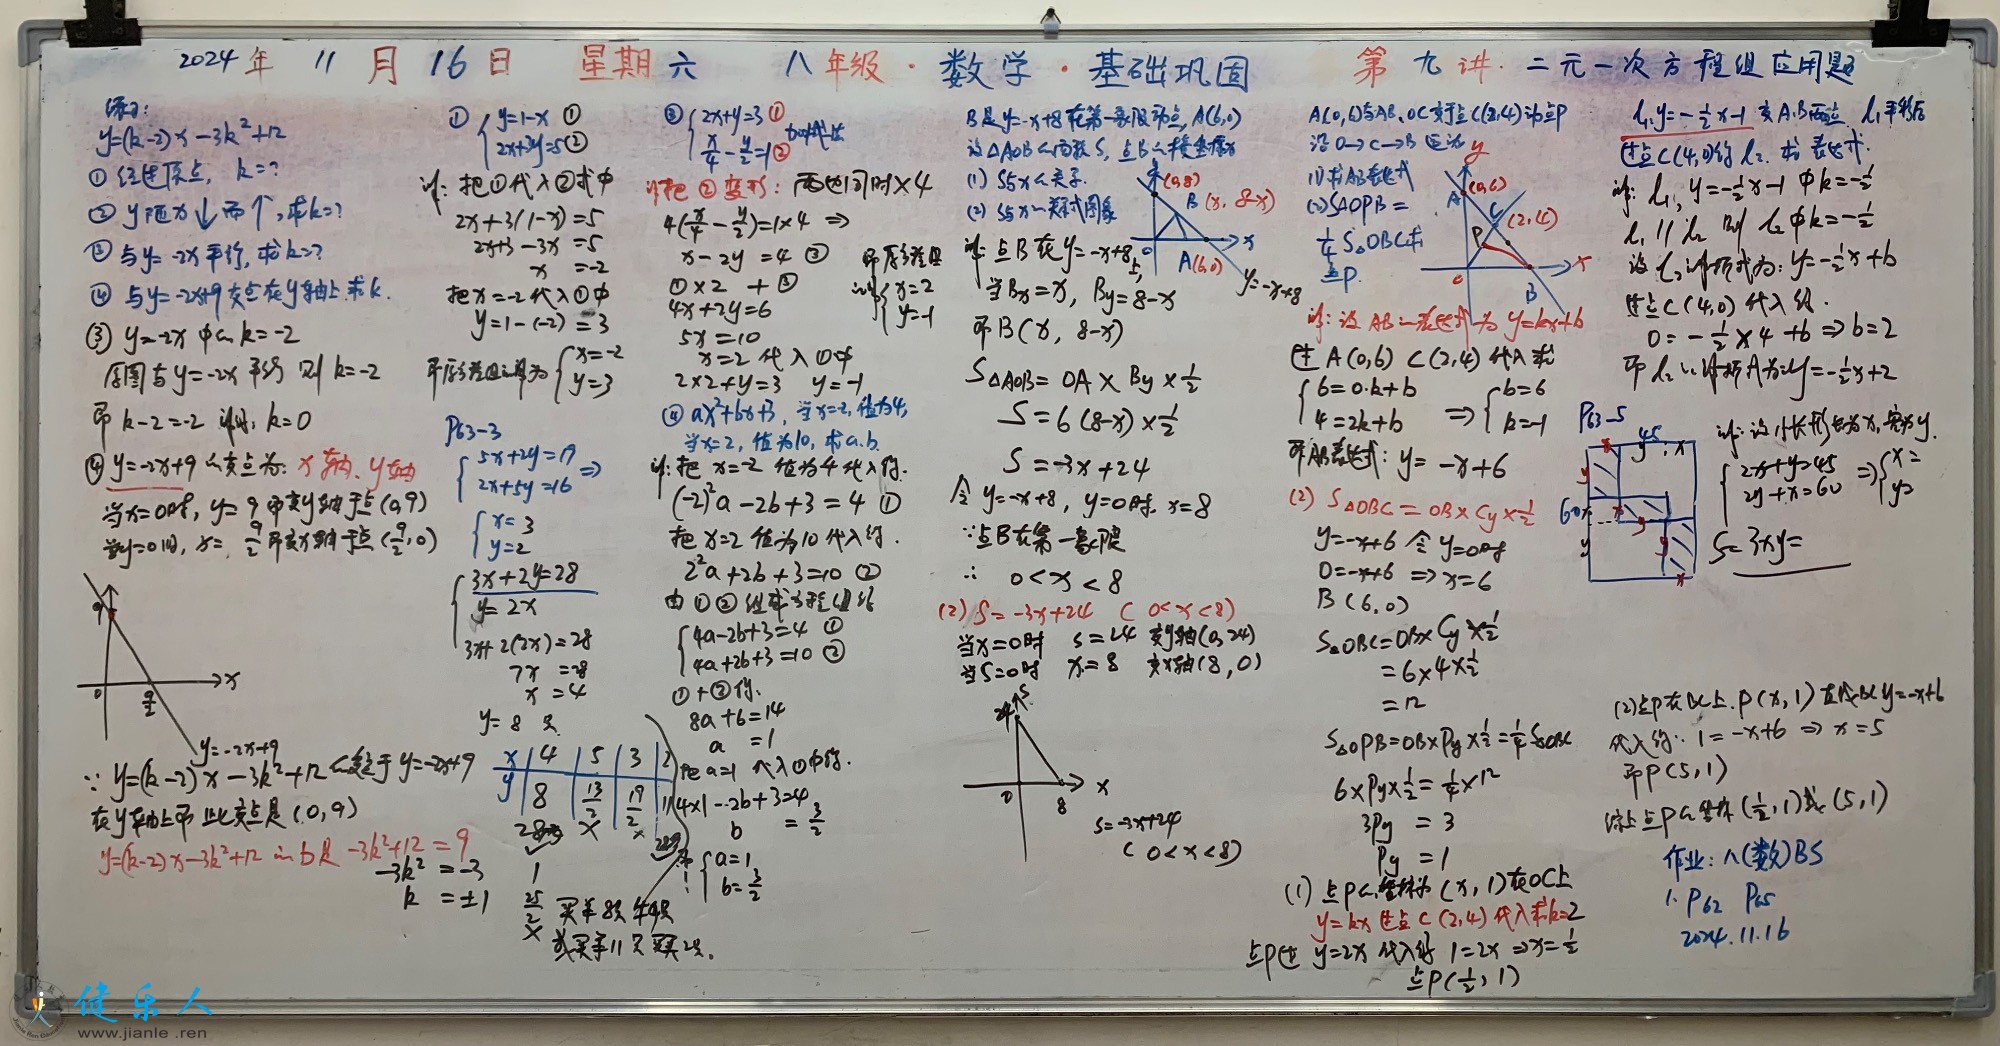 2024年 11月16日 星期六 八年级·数学·基础巩固 第九讲·二元一次方程组应用题
练习:
y=(k-2)x-3k²+12
① 经过原点, k=?
② y随x↓而↑,求k=?
③ 与y=-2x平行,求k=?
④ 与y=-2x+9交点在y轴上求k.
③ y=-2x中的k=-2
原图与y=-2x平行则k=-2
即k-2=-2 解得,k=0
④ y=-2x+9的交点为: x轴、y轴
当x=0时,y=9即交y轴于点(0,9)
当y=0时,x=9/2即交x轴于点(9/2,0)
9
0
9/2
x
y=-2x+9
∵ y=(k-2)x-3k²+12的交于y=-2x+9
在y轴上即此交点是(0,9)
y=(k-2)x-3k²+12的b是 -3k²+12=9
-3k²=-3
k=±1
① { y=1-x ①
2x+3y=5 ②
解:把①代入②式中
2x+3(1-x)=5
2x+3-3x=5
x=-2
把x=-2代入①中
y=1-(-2)=3
即原方程组的解为 { x=-2
y=3
P63-3
{ 5x+2y=19 ⇒
2x+5y=16
{ x=3
y=2
{ 3x+2y=28
y=2x
3x+2(2x)=28
7x=28
x=4
y=8
x 4 5 3 2
y 8 13/2 19/2 11
28 × ×
1
25/2
×
② { 2x+y=3 ①
x/4-y/2=1 ② 加减法
解:把②变形: 两边同时×4
4(x/4-y/2)=1×4 ⇒
x-2y=4 ③
①×2+③
4x+2y=6
5x=10
x=2 代入①中
2×2+y=3 y=-1
即原方程组
的解 { x=2
y=-1
④ ax²+bx+3,当x=-2,值为4,
当x=2,值为10,求a.b.
解:把 x=-2 值为4代入得.
(-2)²a-2b+3=4 ①
把x=2 值为10代入得.
2²a+2b+3=10 ②
由①②组成方程组得
{ 4a-2b+3=4 ①
4a+2b+3=10 ②
①+②得.
8a+6=14
a=1
把a=1代入①中得.
4×1-2b+3=4
b=3/2
{ a=1
b=3/2
B是y=-x+8在第一象限动点,A(6,0)
设△AOB的面积S,点B的横坐标为x
(1) S与x的关系.
(2) S与x的关系式图象
(0,8)
B (x,8-x)
0
x
A(6,0)
y=-x+8
解:点B在y=-x+8上,
当Bx=x, By=8-x
即B(x,8-x)
S△AOB=OA×By×1/2
S=6(8-x)×1/2
S=-3x+24
令y=-x+8,y=0时,x=8
∵点B在第一象限
∴ 0<x<8
(2) S=-3x+24 (0<x<8)
当x=0时 s=24 交y轴(0,24)
当S=0时 x=8 交x轴(8,0)
s
24
0
8
x
s=-3x+24
(0<x<8)
A(0,6)与AB、OC交于点C(2,4)动点P
沿O→C→B运动
(1)求AB表达式
(2)S△OPB=
1/4 S△OBC求
点P.
y
(0,6)
A
C
(2,4)
P
0
B
x
解:设AB的表达式为y=kx+b
过A(0,6) C(2,4)代入求
{ 6=0·k+b
4=2k+b ⇒ { b=6
k=-1
即AB表达式: y=-x+6
(2) S△OBC=OB×Cy×1/2
y=-x+6 令y=0时
0=-x+6 ⇒ x=6
B(6,0)
S△OBC=OB×Cy×1/2
=6×4×1/2
=12
S△OPB=OB×Py×1/2=1/4 S△OBC
6×Py×1/2=1/4×12
3Py=3
Py=1
(1) 点P的坐标为(x,1)在OC上
y=kx过点C(2,4)代入求k=2
点P过y=2x代入得 1=2x⇒x=1/2
点P(1/2,1)
l₁y=-1/2x-1 交A.B两点 l₁平移后
过点C(4,0)的l₂.求表达式.
解: l₁,y=-1/2x-1中k=-1/2
l₁∥l₂ 则l₂中k=-1/2
设l₂解析式为: y=-1/2x+b
过点C(4,0)代入得.
0=-1/2×4+b⇒b=2
即l₂的解析式为:y=-1/2x+2
P63-5
45
x
y
60
解:设小长形长为x,宽为y.
{ 2x+y=45
2y+x=60 ⇒ { x=
y=
S=3xy=
(2)点P在BC上.P(x,1)直线BC y=-x+6
代入得: 1=-x+6⇒x=5
即P(5,1)
综上点P的坐标(1/2,1)或(5,1)
作业: 八(数)BS
1. P62 P65
2024.11.16
健乐人
www.jianle.ren